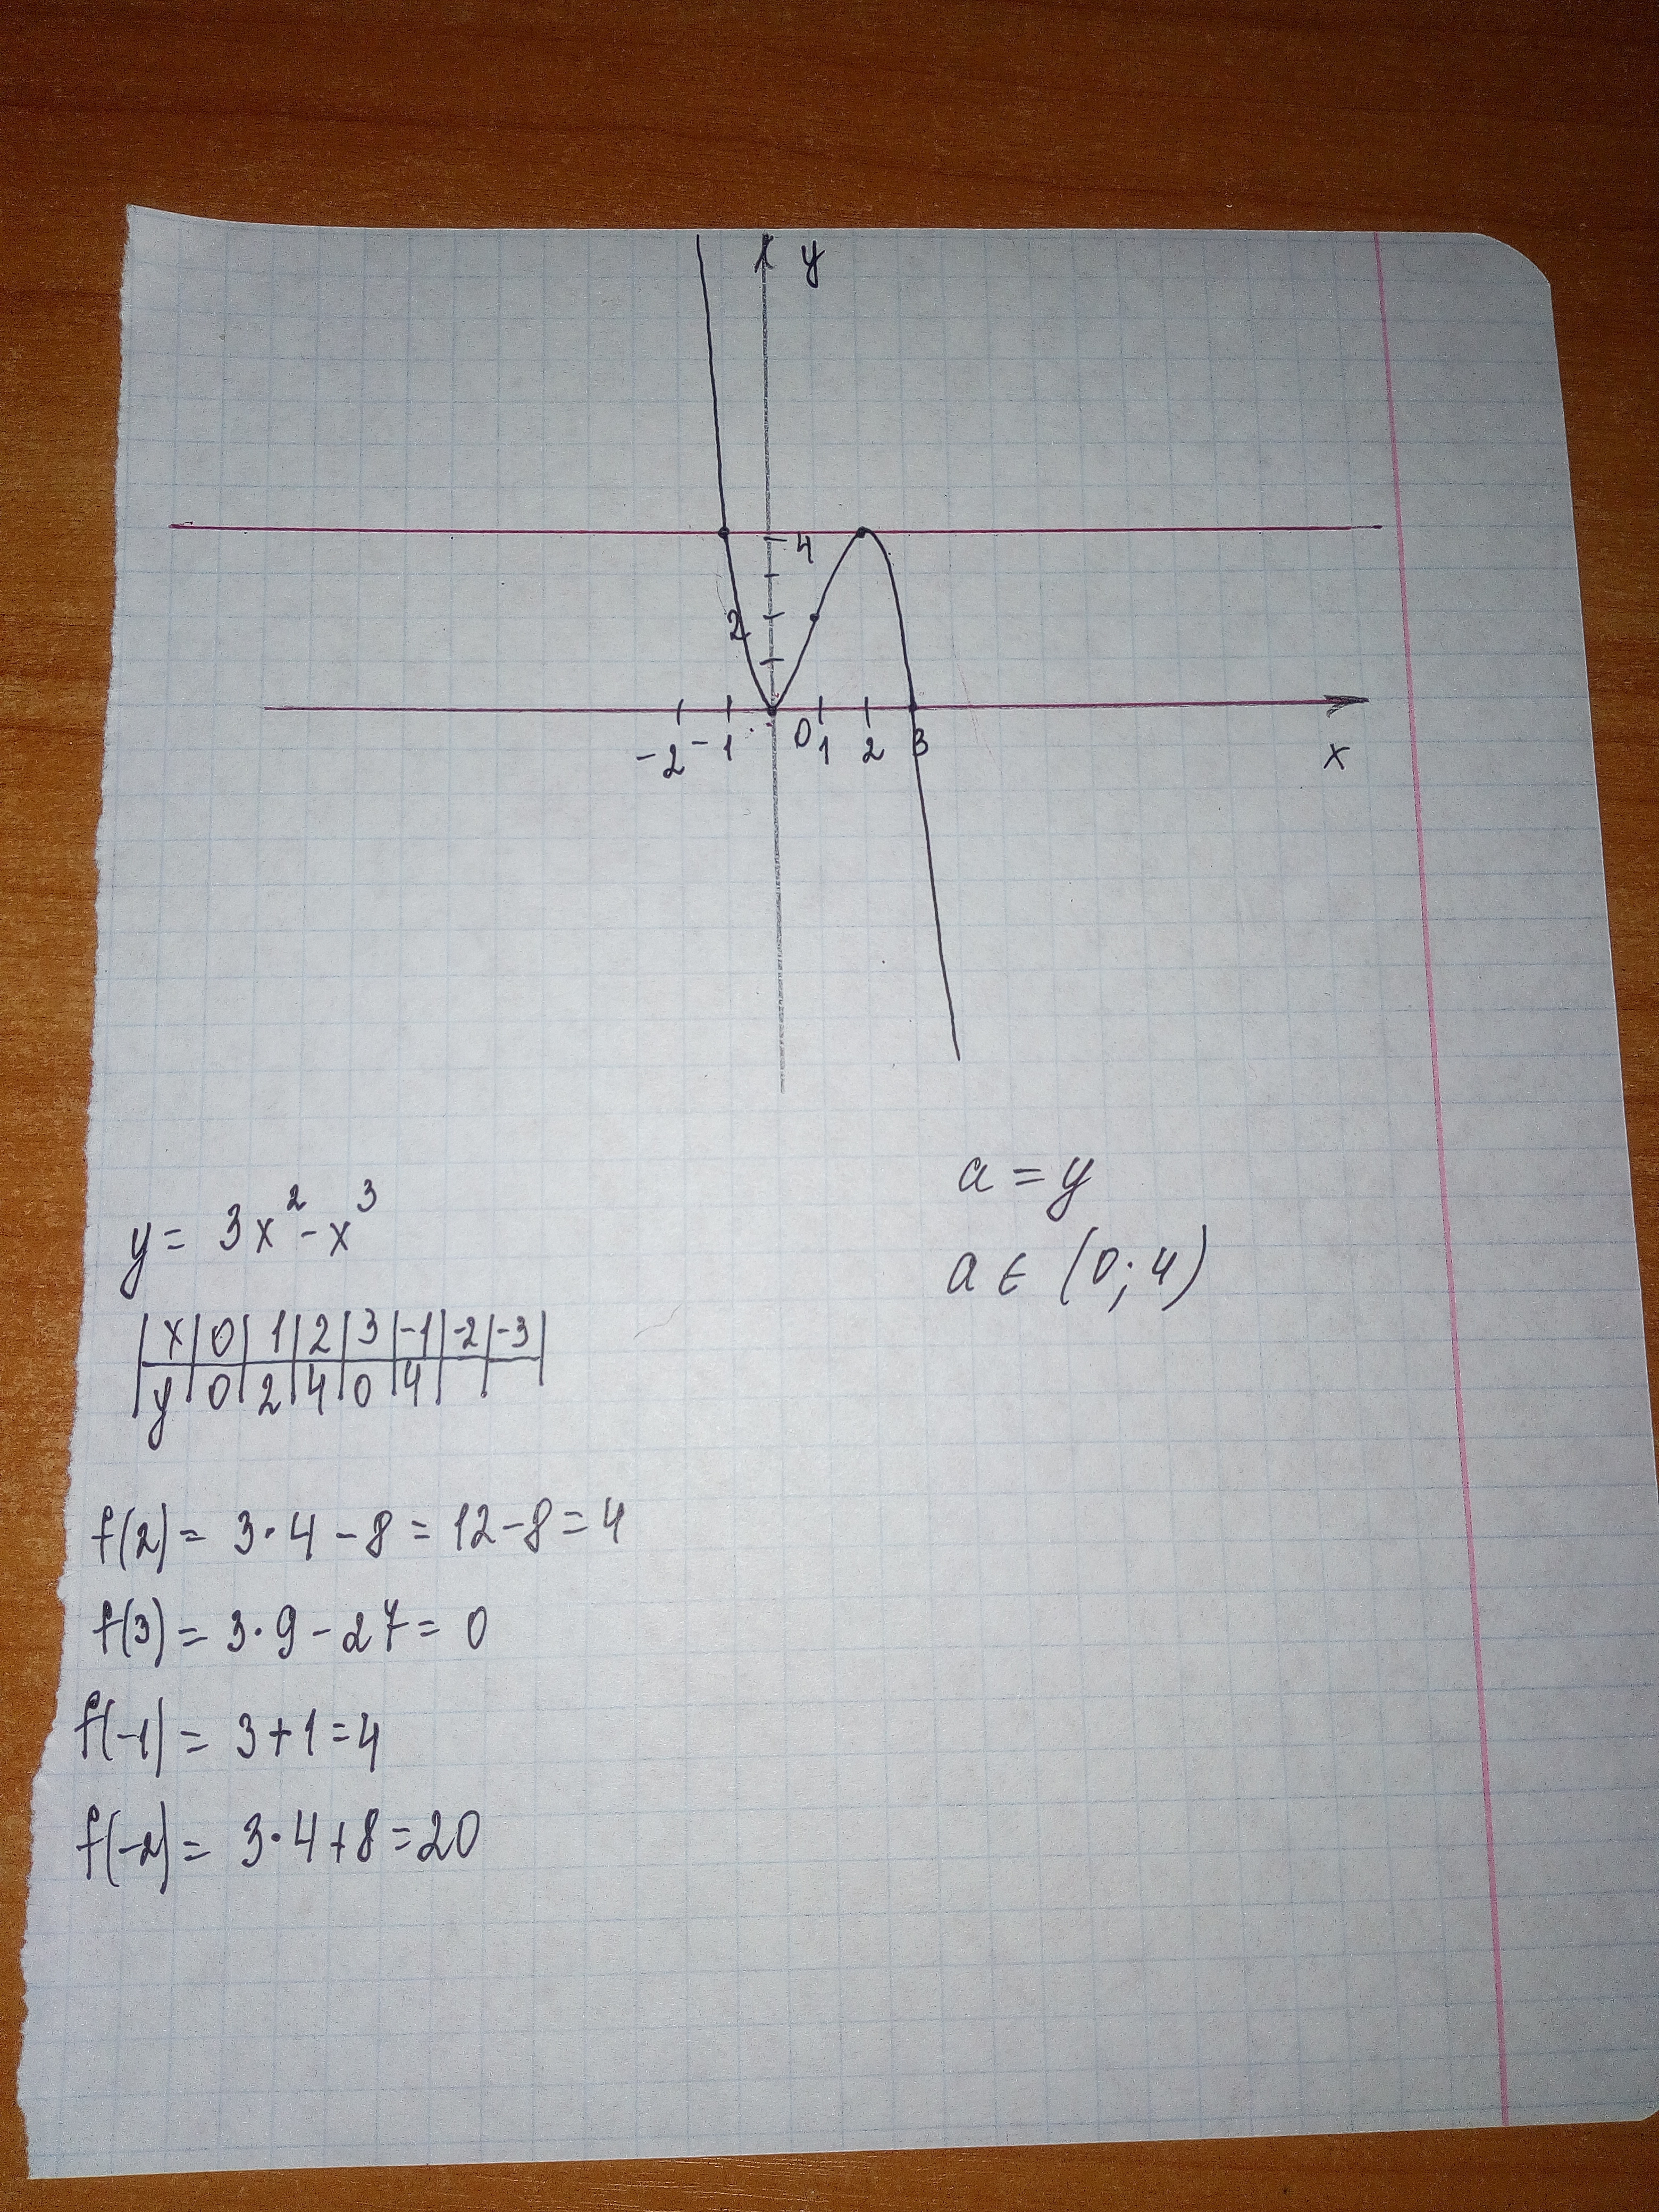 y
4
2
-2 -1 0 1 2 3 x
a = y
y = 3x² - x³
a ∈ (0; 4)
x 0 1 2 3 -1 -2 -3
y 0 2 4 0 4
f(2) = 3·4 - 8 = 12 - 8 = 4
f(3) = 3·9 - 27 = 0
f(-1) = 3 + 1 = 4
f(-2) = 3·4 + 8 = 20